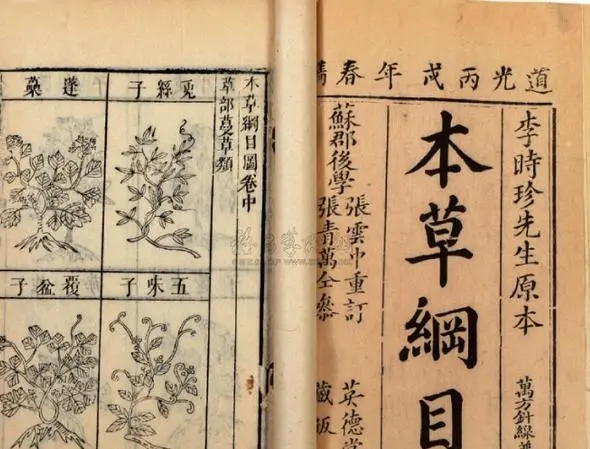 道光丙戌年春鐫
李時珍先生原本
萬方針線
本草綱目
蘇郡後學
張雲中重訂
張青萬仝參
英德堂
藏板
本草綱目圖卷中
草部蔓草類
兔絲子
蓬蘽
五味子
覆盆子